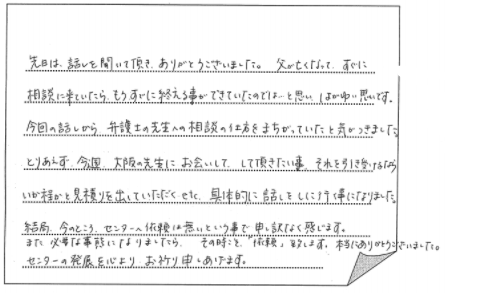 先日は、話しを聞いて頂き、ありがとうございました。 父が亡くなって、すぐに
相談に来ていたら、もうすでに終える事ができていたのでは…と思い、はがゆい思いです。
今回の話しから、弁護士の先生への相談の仕方をまちがっていたと気がつきました。
とりあえず、今週、大阪の先生に お会いして、して頂きたい事、それを引き受けるなら
いか程かと見積りを出していただく etc、具体的に 話しをしに行く事になりました。
結局、今のところ、センターへ依頼は無いという事で申し訳なく感じます。
また 必要な事態になりましたら、その時こそ「依頼」致します。本当にありがとうございました。
センターの発展を心より、お祈り申しあげます。